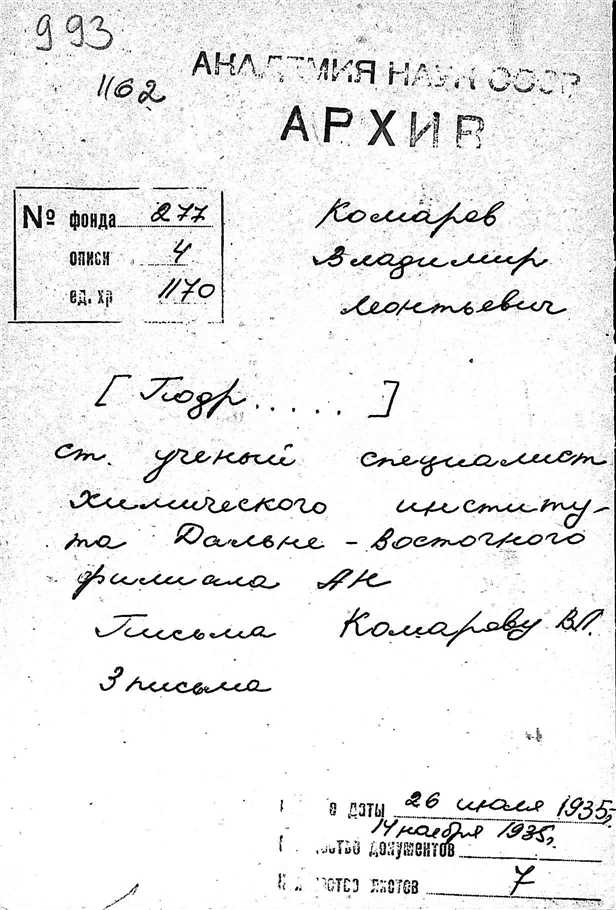 993
1162
АКАДЕМИЯ НАУК СССР
АРХИВ
№ фонда 277
описи 4
ед. хр 1170
Комаров
Владимир
Леонтьевич
[Подр.....]
ст. ученый специалист
химического институ-
та Дальне-Восточного
филиала АН
Письма Комарову В.Л.
3 письма
е даты 26 июля 1935г.
14 ноября 1935г.
ство документов
ство листов 7